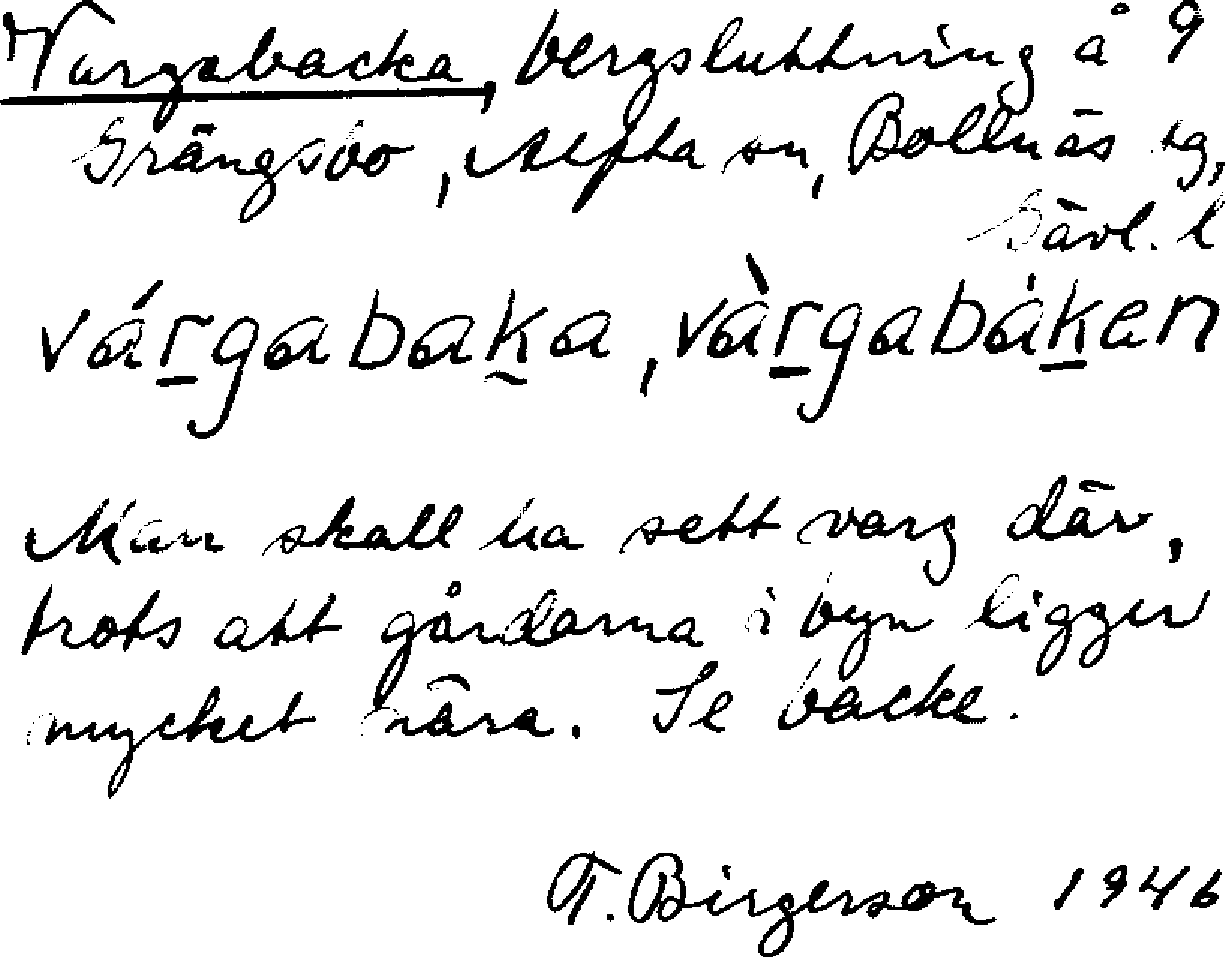 Vargabacka, bergsluttning å 9
Grängsbo, Alfta sn, Bollnäs tg,
Gävl. l
várgabaka, vàrgabàken
Man skall ha sett varg där,
trots att gårdarna i byn ligger
mycket nära. Se backe.
T. Birgerson 1946